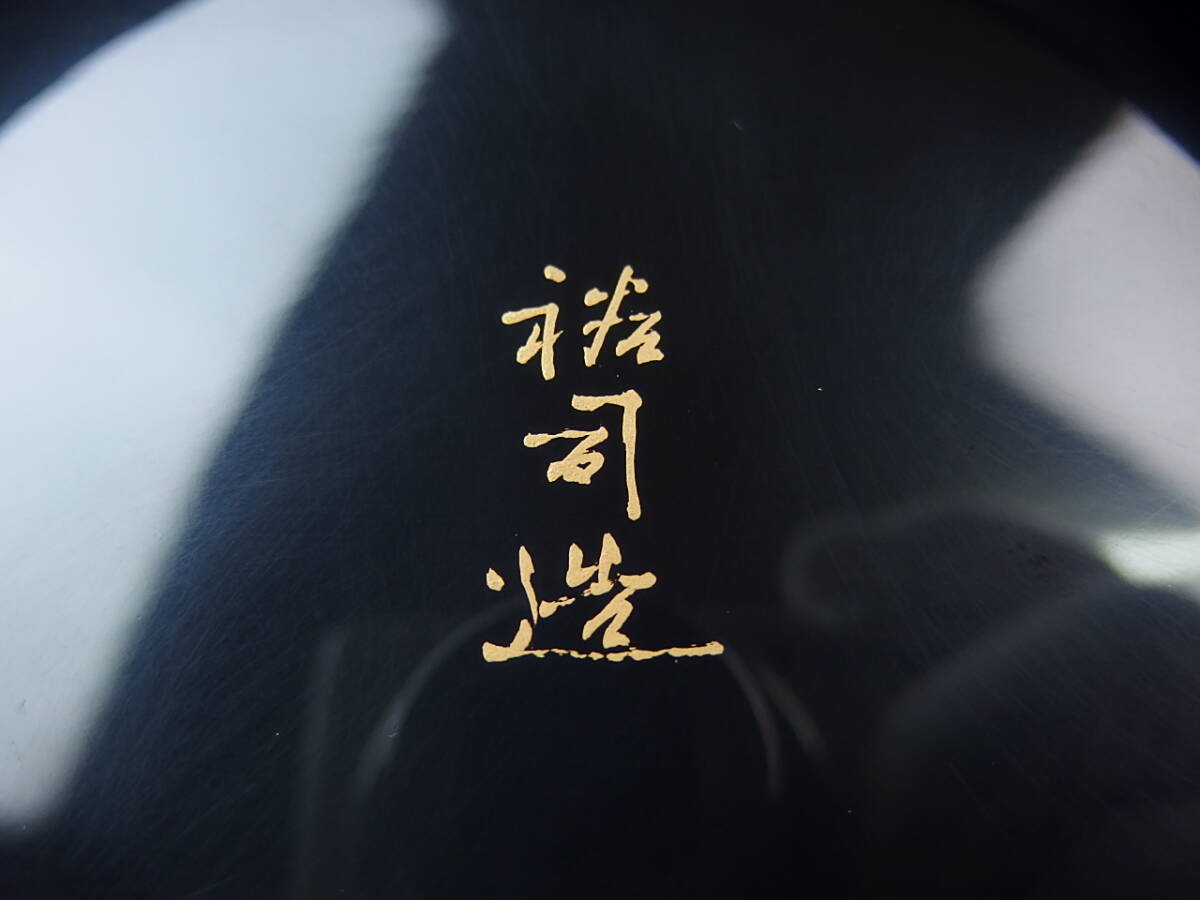 裕司造